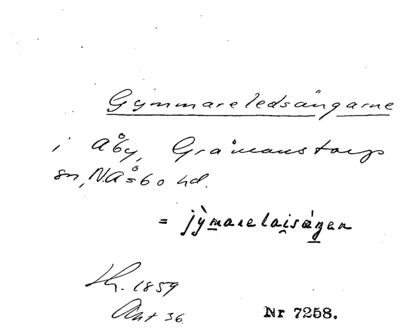 Gymmareledsångarne
i Åby, Gråmanstorps
sn, NÅsbo hd.
= jỳmarelaisáŋen
Lh. 1859
Ant 36.
Nr 7258.